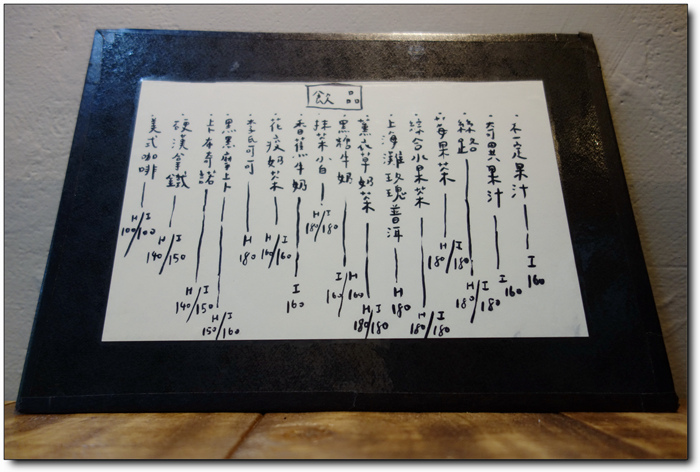 飲品
·不一定果汁—I 160
·奇異果汁—I 160
·絲路—H/I 180/180
·莓果茶—H/I 180/180
·綜合水果茶—H/I 180/180
·上海灘玫瑰普洱—H 180
·薰衣草奶茶—H/I 180/180
·黑糖牛奶—H/I 160/160
·抹茶小白—H/I 180/180
·香蕉牛奶—I 160
奶茶—H/I 160/160
·李氏可可—H 180
·黑黑摩卡—H/I 150/160
·卡布奇諾—H/I 140/150
·硬漢拿鐵—H/I 140/150
·美式咖啡—H/I 100/100